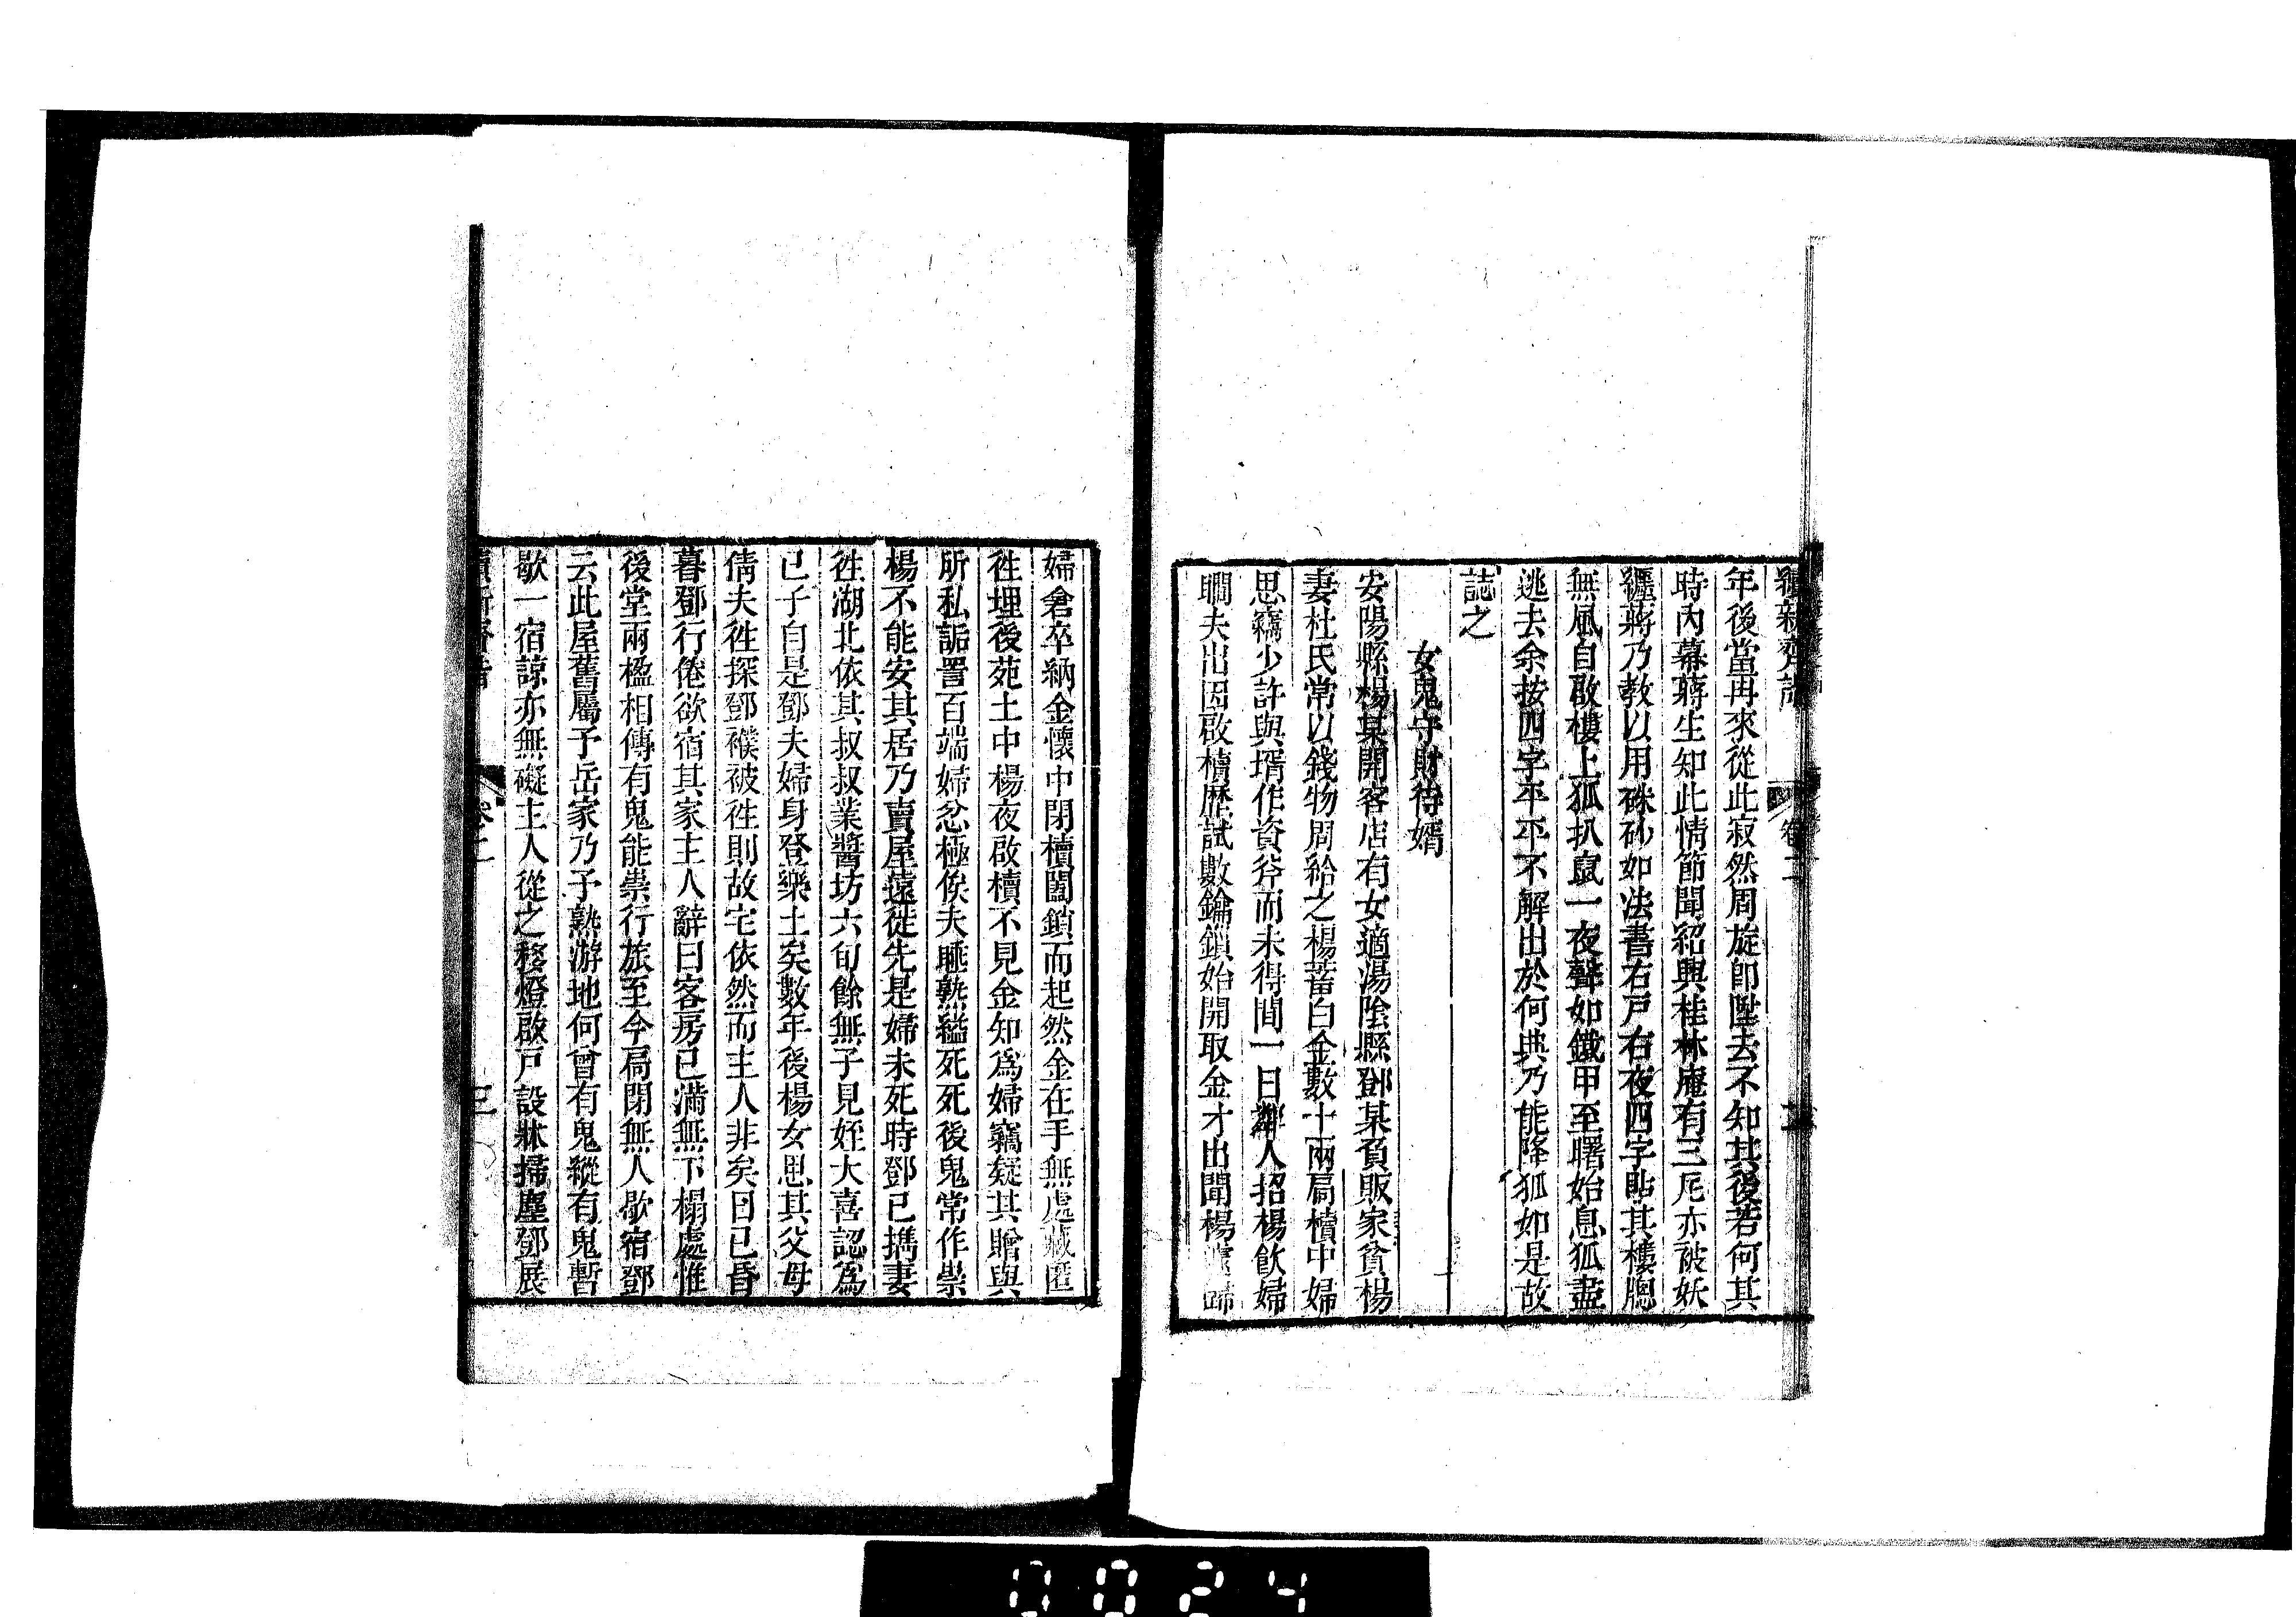 續新齊諧　卷二
年後當再來從此寂然周旋卽陞去不知其後若何其
時內幕蔣生知此情節聞紹興桂林庵有三尼亦被妖
纏蔣乃敎以用硃砂如法書右戸右夜四字貼其樓牎
無風自啟樓上狐扒鼠一夜聲如鐵甲至曙始息狐盡
逃去余按四字平平不解出於何典乃能降狐如是故
誌之
女鬼守財待婿
安陽縣楊某開客店有女適湯陰縣鄧某負販家貧楊
妻杜氏常以錢物周給之楊蓄白金數十兩扃櫝中婦
思竊少許與壻作資斧而未得間一日鄰人招楊飮婦
瞯夫出因啟櫝歴試數鑰鎖始開取金才出聞楊遽歸
婦倉卒納金懷中閉櫝闔鎖而起然金在手無處藏匿
徃埋後苑土中楊夜啟櫝不見金知爲婦竊疑其贈與
所私詬詈百端婦忿極俟夫睡熟縊死死後鬼常作祟
楊不能安其居乃賣屋遠徙先是婦未死時鄧已攜妻
徃湖北依其叔叔業醬坊六旬餘無子見姪大喜認爲
已子自是鄧夫婦身登樂土矣數年後楊女思其父母
倩夫徃探鄧襆被徃則故宅依然而主人非矣因已昏
暮鄧行倦欲宿其家主人辭曰客房已滿無下榻處惟
後堂兩楹相傳有鬼能祟行旅至今扃閉無人歇宿鄧
云此屋舊屬予岳家乃予熟游地何曾有鬼縱有鬼暫
歇一宿諒亦無礙主人從之移燈啟戸設牀掃塵鄧展
卷二　三